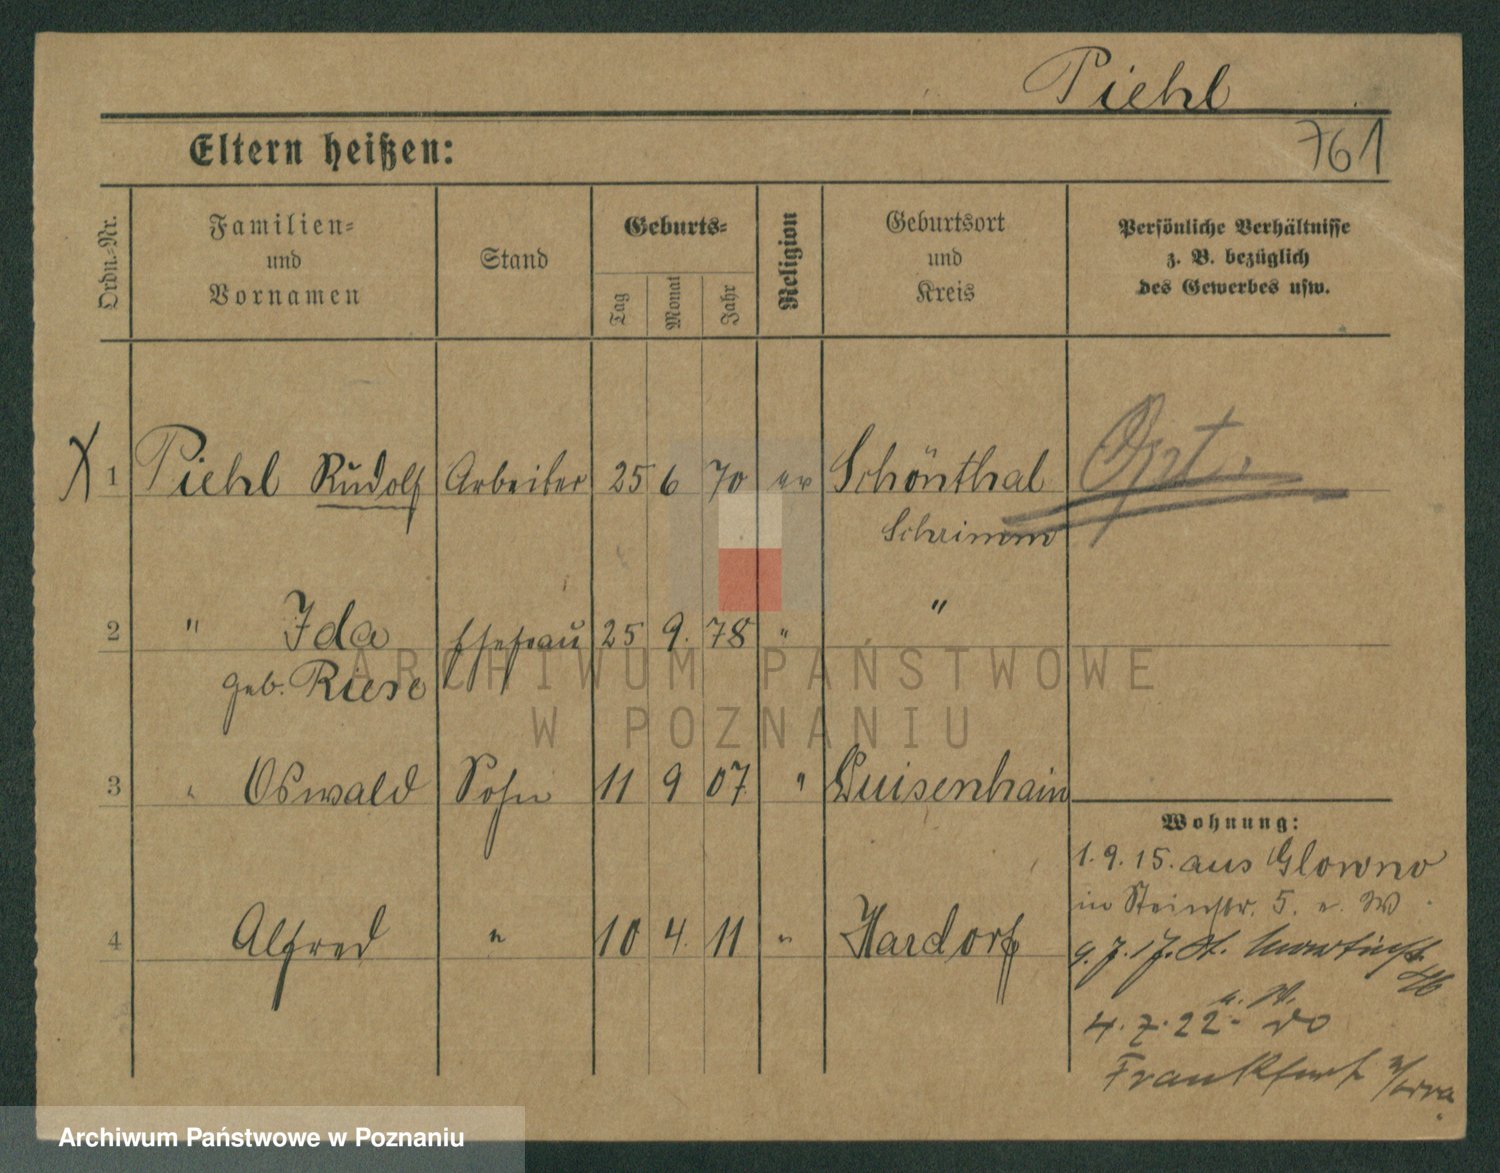 Piehl
761
Eltern heißen:
Ordn.-Nr.
Familien-
und
Vornamen
Stand
Geburts-
Tag
Monat
Jahr
Religion
Geburtsort
und
Kreis
Persönliche Verhältnisse
z. B. bezüglich
des Gewerbes usw.
X 1 Piehl Rudolf Arbeiter 25 6 70 ev Schönthal
Schrimm
Opt.
2 " Ida Ehefrau 25 9. 78 " "
geb. Riese
3 " Oswald Sohn 11 9 07 " Luisenhain
4 Alfred " 10 4. 11 " Hardorf
Wohnung:
1.9.15. aus Glowno
in Steinstr. 5. e. W
9.7.17. St. Martinstr.
46
u. W.
4.7.22.
Frankfurt
ARCHIWUM PAŃSTWOWE
W POZNANIU
Archiwum Państwowe w Poznaniu